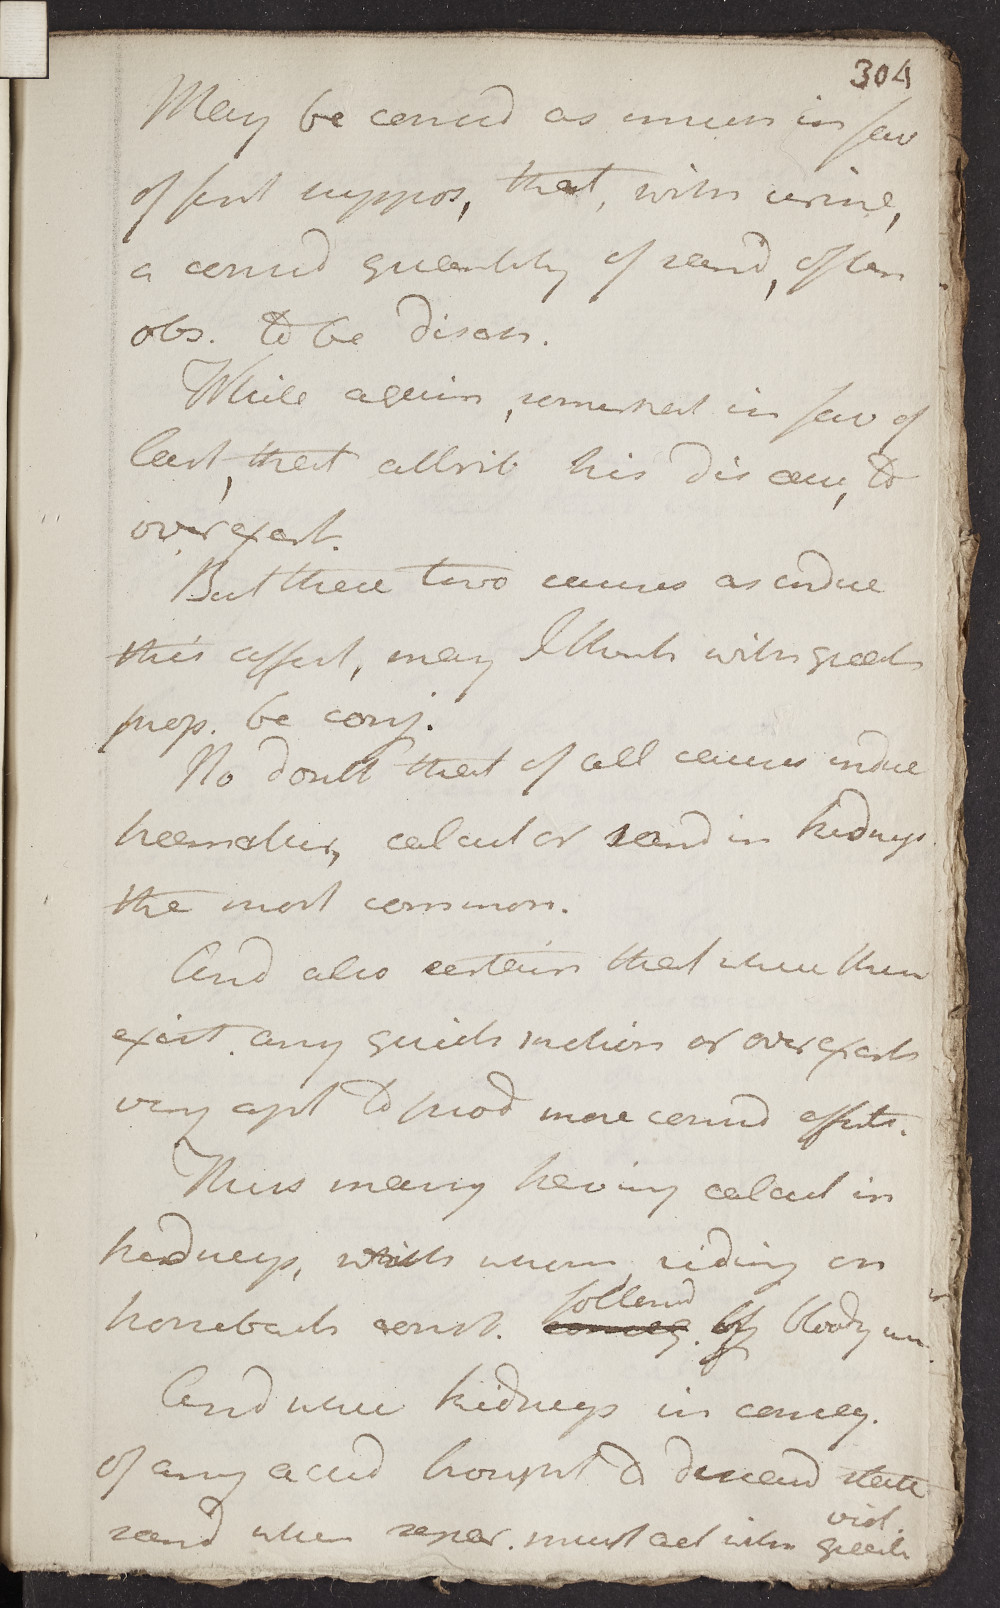 304
May be consid asument in fav
of first suppos, that, with urine,
a consid quantity of sand, often
obs. to be disch.
While again, somewhat in fav of
last, that attrib his disease, to
overexert.
But these two causes as indue
this affect, may I think with great
prop. be conj.
No doubt that of all causes indue
haematur, calcul or sand in kidneys
the most common.
And also certain that where there
exist any quick motion or overexert
very apt to prod more consid effects.
Thus many having calcul in
kidneys, which when riding on
horseback const. followed by bloody urin.
And when kidneys in conseq.
of any accid brought to diseased state
sand when separ. must act with great
viol.